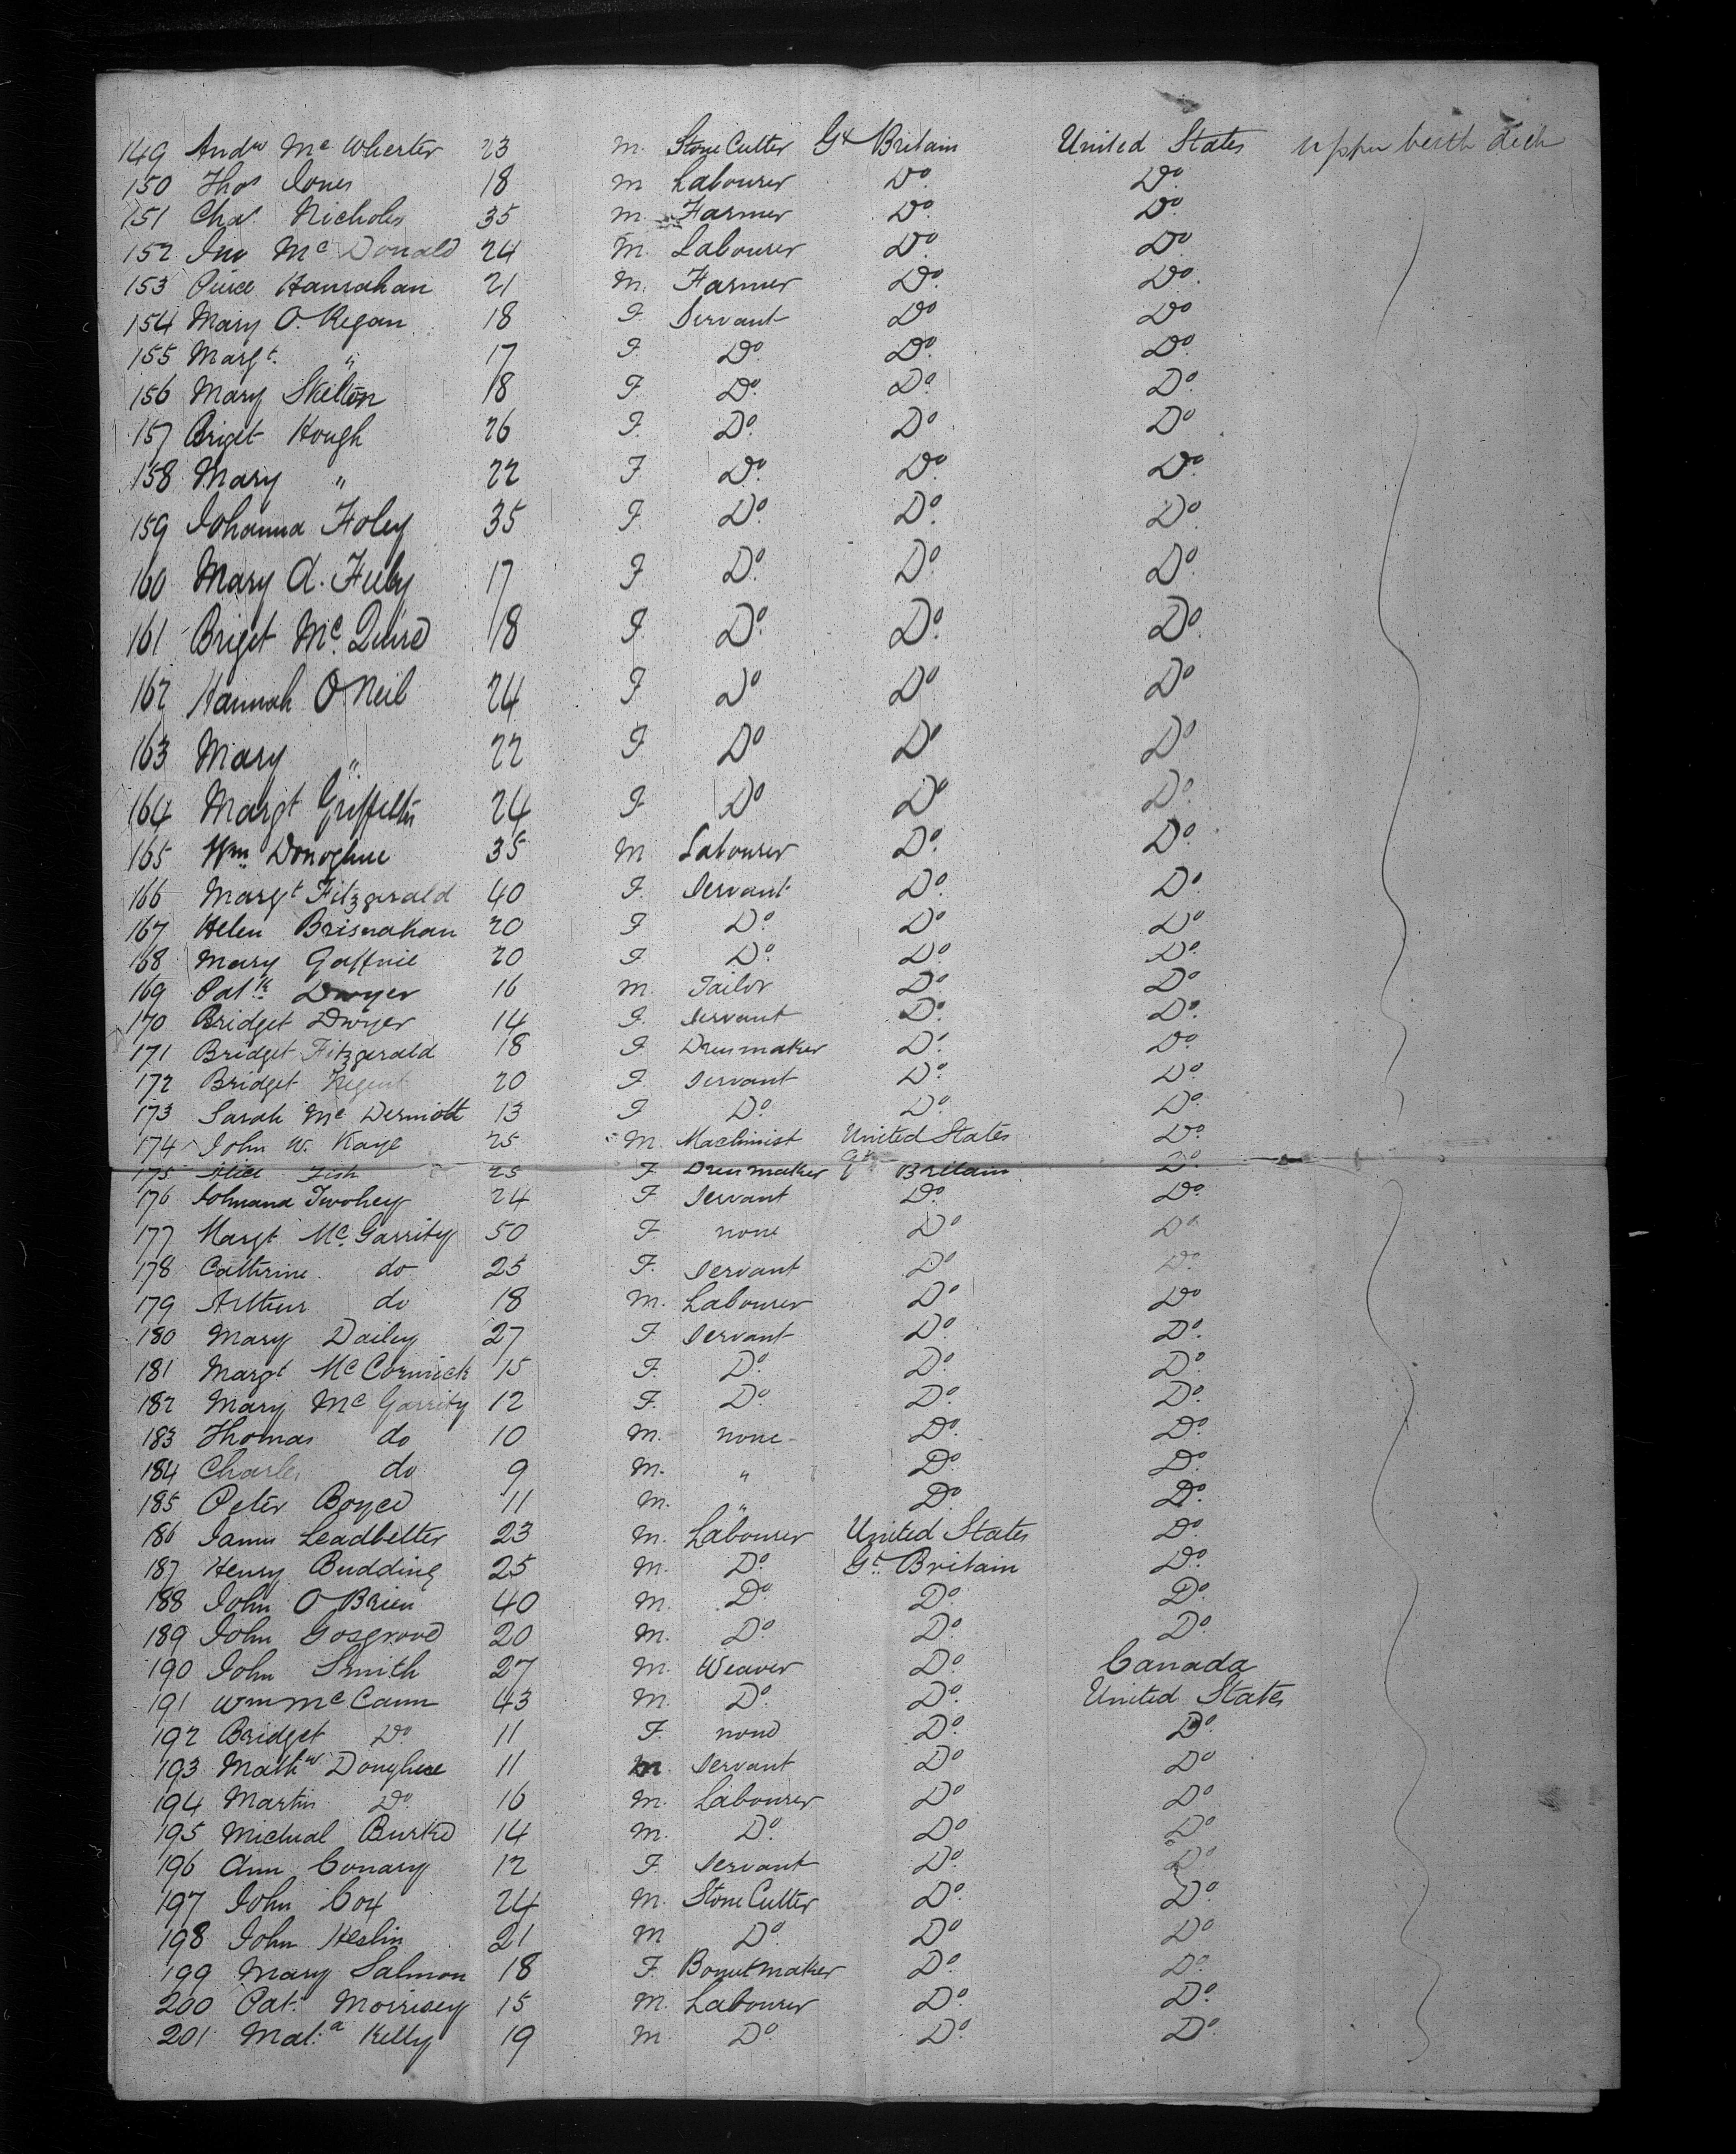 149 Andw Mc Wherter 23 M. Stone Cutter Gt Britain United States upper berth deck
150 Thos Jones 18 M Labourer Do. Do.
151 Chas. Nicholes 35 M. Farmer Do. Do.
152 Jno Mc Donald 24 M. Labourer Do. Do.
153 Pierce Hanrahan 21 M. Farmer Do. Do.
154 Mary O. Regan 18 F. Servant Do Do
155 Margt. " 17 F. Do. Do. Do.
156 Mary Skelton 18 F. Do. Do. Do.
157 Briget Hough 26 F. Do. Do. Do
158 Mary " 22 F Do. Do. Do.
159 Johanna Foley 35 F Do. Do. Do.
160 Mary A. 17 F Do. Do. Do.
161 Briget Mc. 18 F. Do. Do. Do.
162 Hannah O Neil 24 F Do Do. Do
163 Mary " 22 F Do Do Do
164 Margt Griffiths 24 F Do Do Do.
165 Wm Donoghue 35 M Labourer Do. Do.
166 Margt Fitzgerald 40 F. Servant Do. Do.
167 Helen Brisnahan 20 F Do. Do Do
168 Mary Gaffnie 20 F. Do. Do. Do.
169 Patk. Dwyer 16 M. Tailor Do. Do
170 Bridget Dwyer 14 F. Servant Do. Do.
171 Bridget Fitzgerald 18 F. Dressmaker Do. Do.
172 Bridget 20 F. Servant Do. Do.
173 Sarah Mc Dermott 13 F Do. Do. Do.
174 John W. Kaye 25 M. Machinist United States Do.
175 Alice Fish 25 F. Dressmaker Gt Britain Do.
176 Johnana Twohey 24 F Servant Do. Do.
177 Margt Mc. Garrity 50 F. none Do Do
178 Cathrine do 25 F. Servant Do Do.
179 Arthur do 18 M. Labourer Do Do
180 Mary Dailey 27 F Servant Do. Do.
181 Margt McCormick 15 F. Do. Do. Do.
182 Mary Mc Garrity 12 F. Do. Do. Do.
183 Thomas do 10 M. none Do. Do.
184 Charles do 9 M. " Do. Do.
185 Peter Boyce 11 M. " Do. Do.
186 James Leadbetter 23 M. Labourer United States Do.
187 Henry Budding 25 M. Do. Gt. Britain Do.
188 John O Brien 40 M. Do. Do. Do.
189 John Gosgrove 20 M. Do. Do. Do.
190 John Smith 27 M. Weaver Do. Canada
191 Wm Mc Cann 43 M. Do. Do. United States
192 Bridget Do. 11 F. none Do. Do.
193 Mathw Donghue 11 M. Servant Do Do
194 Martin Do. 16 M. Labourer Do Do
195 Micheal Burke 14 M. Do. Do Do
196 Ann Conary 12 F. Servant Do. Do.
197 John Cox 24 M. Stone Cutter Do. Do.
198 John Heslin 21 M Do. Do Do
199 Mary Salmon 18 F. Bonnet maker Do. Do.
200 Pat. Morrisey 15 M. Labourer Do. Do.
201 Mat.a Kelly 19 M. Do. Do. Do.